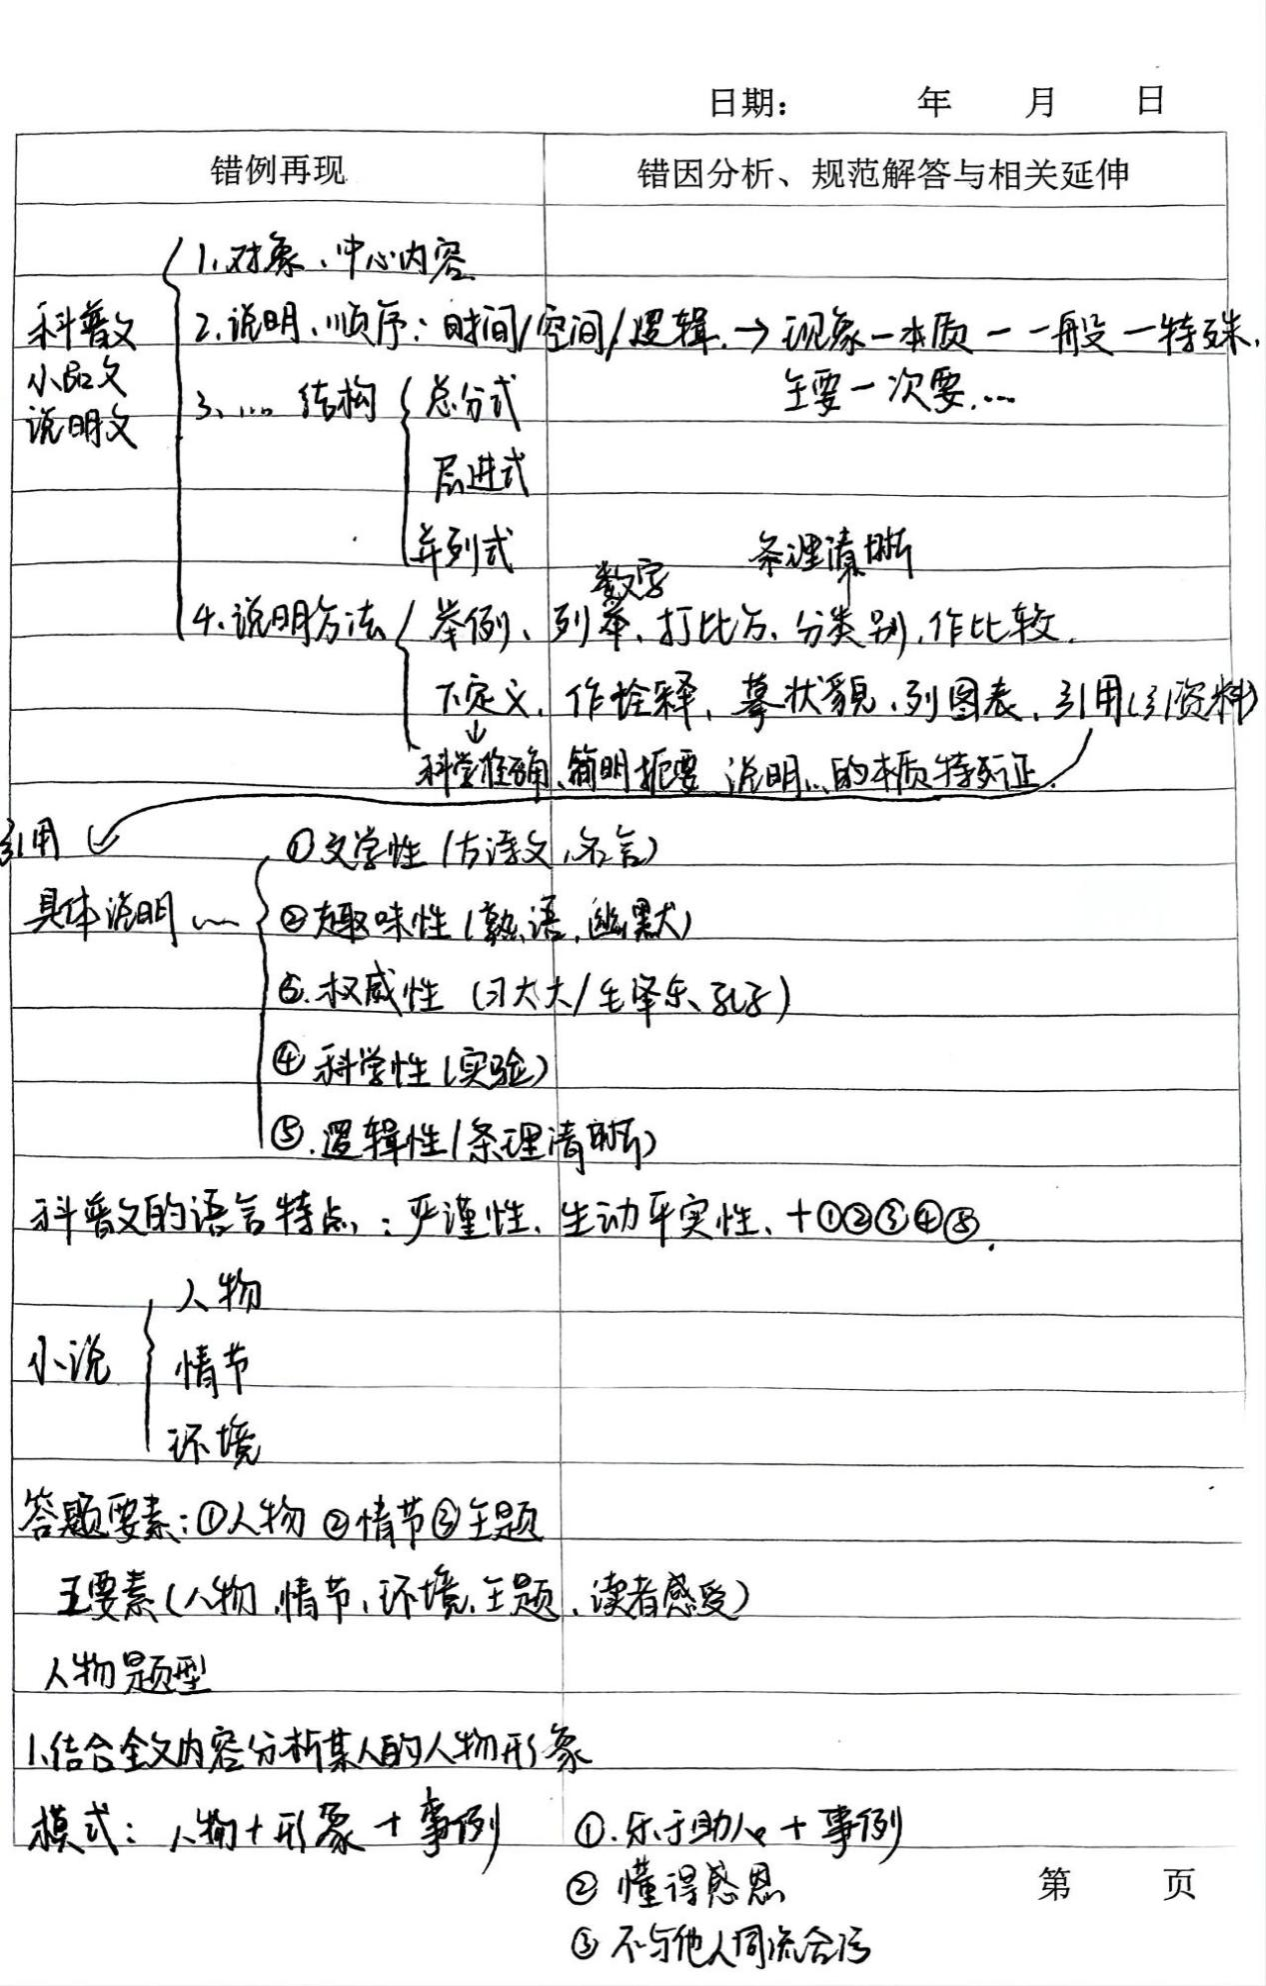 日期： 年 月 日
错例再现 错因分析、规范解答与相关延伸
1.对象、中心内容
科普文 2.说明、顺序：时间/空间/逻辑.→现象一本质一一般一特殊.
小品文 主要一次要.…
说明文 3、… 结构 总分式
层进式
并列式 条理清晰
数字
4.说明方法 举例、列举、打比方、分类别、作比较.
下定义、作诠释、摹状貌、列图表、引用(引资料)
↓
科学准确、简明扼要 说明…的本质特征.
引用 ①文学性(古诗文、名言)
具体说明… ②趣味性(熟语、幽默)
③.权威性(习大大/毛泽东、孔子)
④科学性(实验)
⑤.逻辑性(条理清晰)
科普文的语言特点：严谨性、生动平实性、+①②③④⑤.
人物
小说 情节
环境
答题要素：①人物 ②情节③主题
五要素(人物、情节、环境、主题、读者感受)
人物题型
1.结合全文内容分析某人的人物形象
模式：人物+形象+事例 ①.乐于助人+事例
② 懂得感恩
第 页
③ 不与他人同流合污